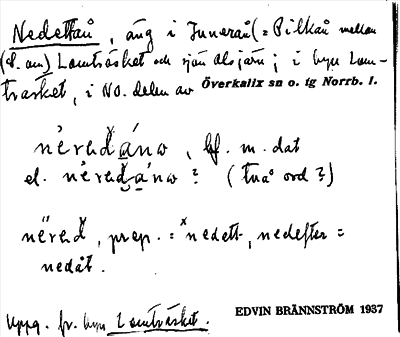 Nedettån, äng i Inneran (= Pilkån mellan
(S. om) Lomträsket och sjön Alsjärn; i byn Lom-
träsket, i NO. delen av Överkalix sn o. tg Norrb. l.
nèređáno, bf. m. dat
el. nèređáno? (två ord?)
nëređ, prep. = *nedett, nedefter =
nedåt.
Uppg. fr. byn Lomträsket.
EDVIN BRÄNNSTRÖM 1937